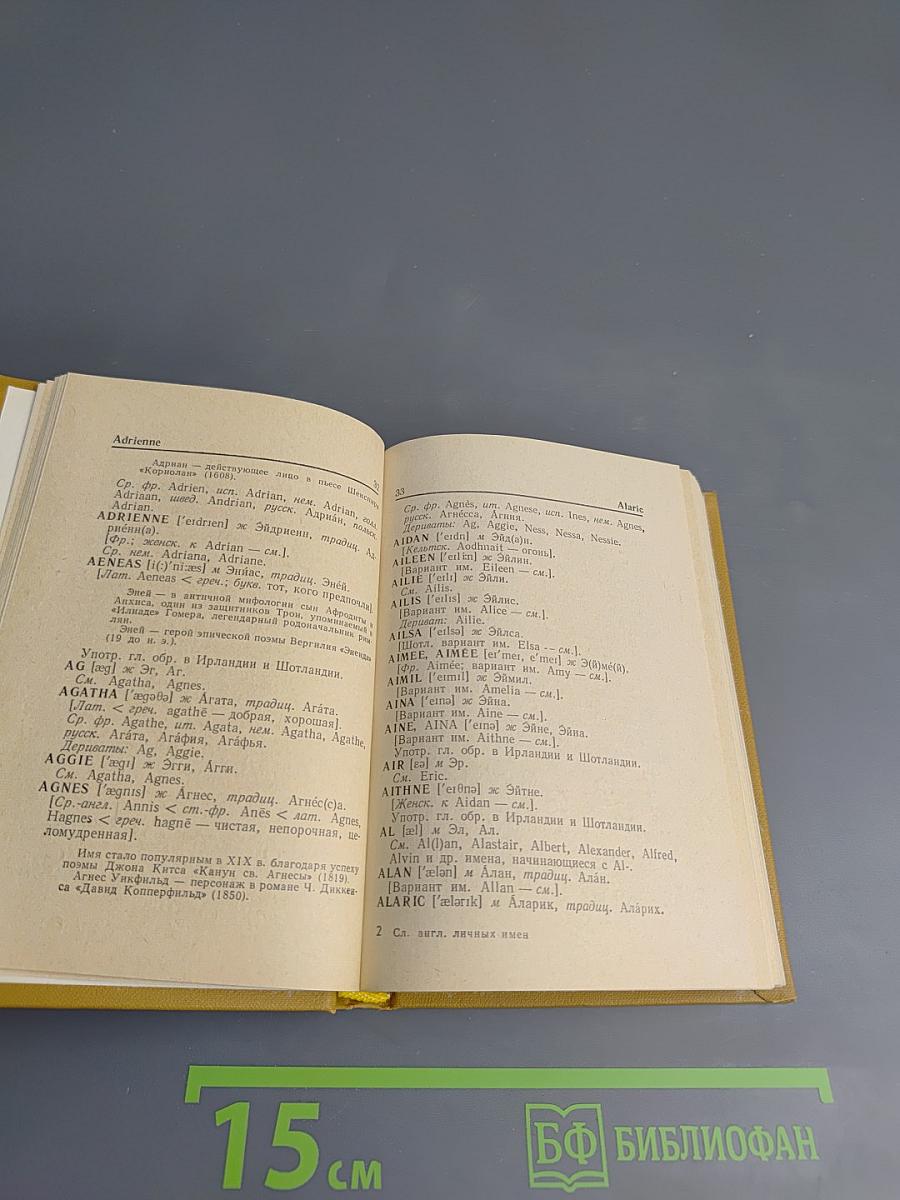 Adrienne
32
Адриан — действующее лицо в пьесе Шекспира
«Кориолан» (1608).
Ср. фр. Adrien, исп. Adrian, нем. Adrian, голл.
Adriaan, швед. Andrian, русск. Адриа́н, польск.
Adrian.
ADRIENNE ['eɪdrɪen] ж Э́йдриенн, традиц. Ад-
рие́нн(а).
[Фр.; женск. к Adrian — см.].
Ср. нем. Adriana, Adriane.
AENEAS [i(:)'ni:æs] м Эни́ас, традиц. Эне́й.
[Лат. Aeneas < греч.; букв. тот, кого предпочли].
Эней — в античной мифологии сын Афродиты и
Анхиса, один из защитников Трои, упоминаемый в
«Илиаде» Гомера, легендарный родоначальник рим-
лян.
Эней — герой эпической поэмы Вергилия «Энеида»
(19 до н. э.).
Употр. гл. обр. в Ирландии и Шотландии.
AG [æg] ж Эг, Аг.
См. Agatha, Agnes.
AGATHA ['ægəθə] ж А́гата, традиц. Ага́та.
[Лат. < греч. agathē — добрая, хорошая].
Ср. фр. Agathe, ит. Agata, нем. Agatha, Agathe,
русск. Ага́та, Ага́фия, Ага́фья.
Дериваты: Ag, Aggie.
AGGIE ['ægɪ] ж Э́гги, А́гги.
См. Agatha, Agnes.
AGNES ['ægnɪs] ж А́гнес, традиц. Агне́с(с)а.
[Ср.-англ. Annis < ст.-фр. Anēs < лат. Agnes,
Hagnes < греч. hagnē — чистая, непорочная, це-
ломудренная].
Имя стало популярным в XIX в. благодаря успеху
поэмы Джона Китса «Канун св. Агнесы» (1819).
Агнес Уикфильд — персонаж в романе Ч. Диккен-
са «Давид Копперфильд» (1850).
33
Alaric
Ср. фр. Agnès, ит. Agnese, исп. Ines, нем. Agnes,
русск. Агне́сса, А́гния.
Дериваты: Ag, Aggie, Ness, Nessa, Nessie.
AIDAN ['eɪdn] м Э́йд(а)н.
[Кельтск. Aodhnait — огонь].
AILEEN ['eɪli:n] ж Э́йлин.
[Вариант им. Eileen — см.].
AILIE ['eɪlɪ] ж Э́йли.
См. Ailis.
AILIS ['eɪlɪs] ж Э́йлис.
[Вариант им. Alice — см.].
Дериват: Ailie.
AILSA ['eɪlsə] ж Э́йлса.
[Шотл. вариант им. Elsa — см.].
AIMEE, AIMÉE [eɪ'meɪ, e'meɪ] ж Э(й)ме́(й).
[Фр. Aimée; вариант им. Amy — см.].
AIMIL ['eɪmɪl] ж Э́ймил.
[Вариант им. Amelia — см.].
AINA ['eɪnə] ж Э́йна.
[Вариант им. Aine — см.].
AINE, AINA ['eɪnə] ж Э́йне, Э́йна.
[Вариант им. Aithne — см.].
Употр. гл. обр. в Ирландии и Шотландии.
AIR [ɛə] м Эр.
См. Eric.
AITHNE ['eɪθnə] ж Э́йтне.
[Женск. к Aidan — см.].
Употр. гл. обр. в Ирландии и Шотландии.
AL [æl] м Эл, Ал.
См. Al(l)an, Alastair, Albert, Alexander, Alfred,
Alvin и др. имена, начинающиеся с Al-.
ALAN ['ælən] м А́лан, традиц. Ала́н.
[Вариант им. Allan — см.].
ALARIC ['ælərɪk] м А́ларик, традиц. Ала́рих.
2 Сл. англ. личных имен
15 см
БФ БИБЛИОФАН